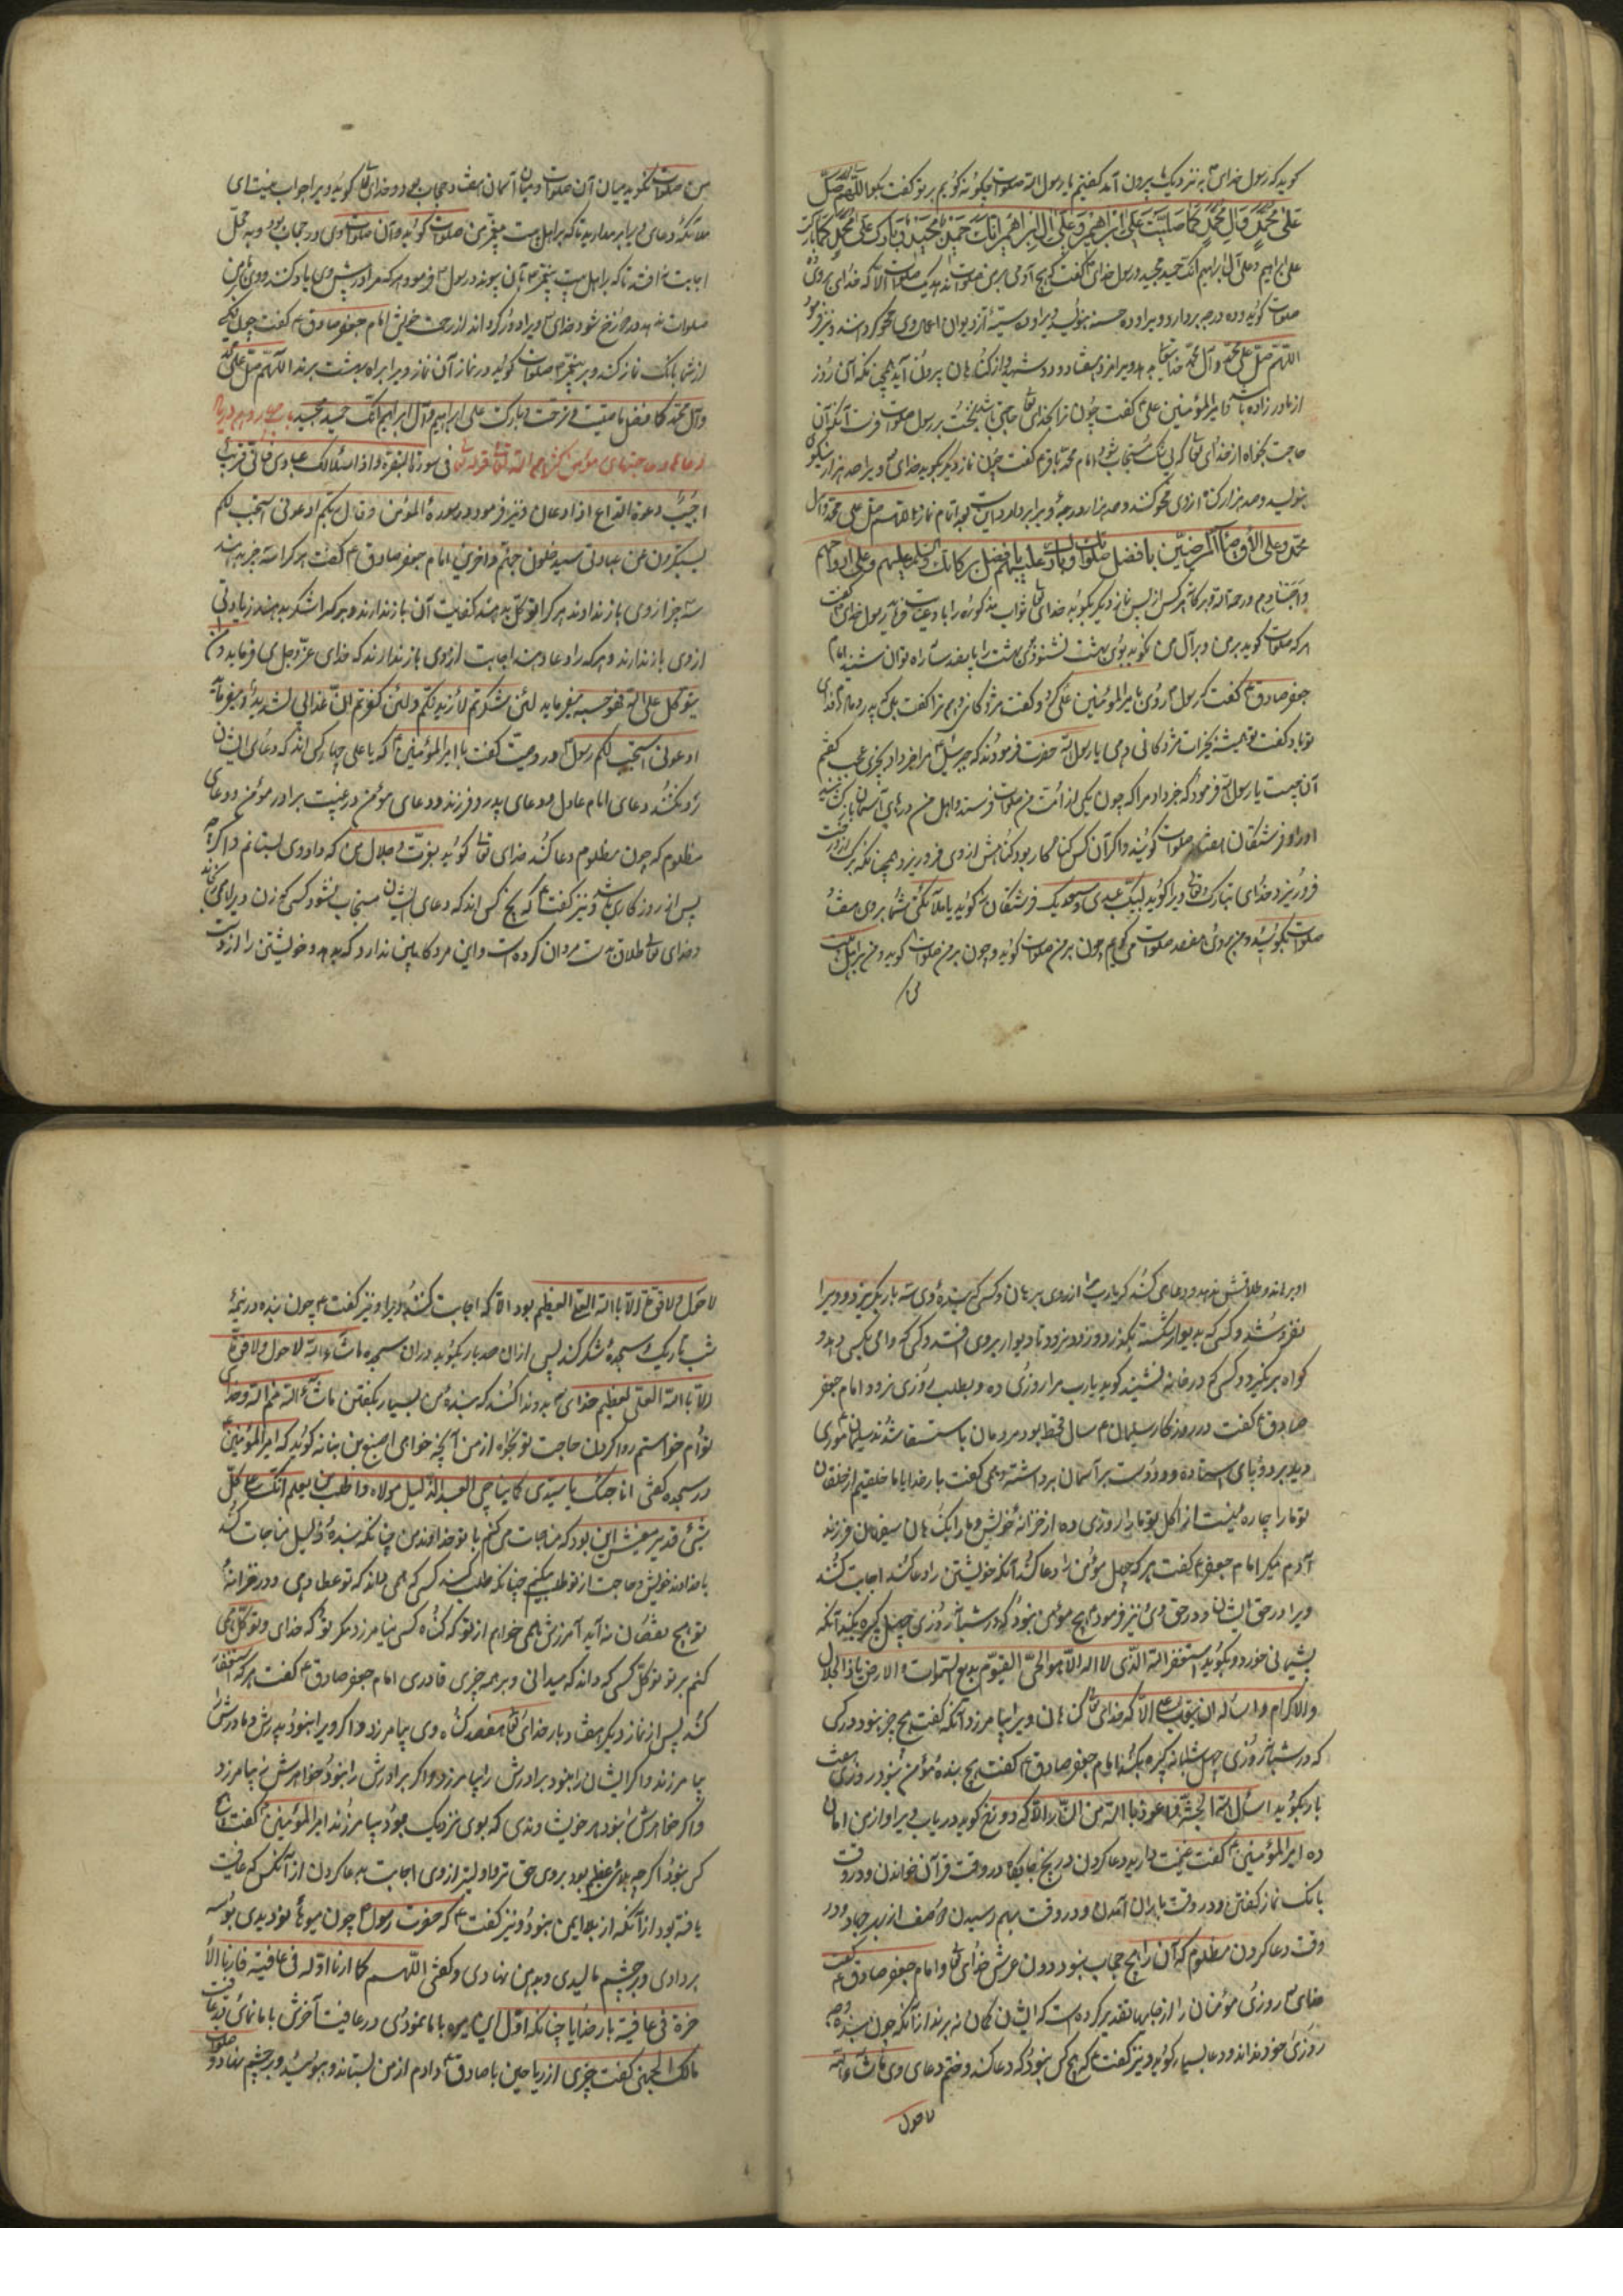 گوید که رسول خدای به نزدیک ما بیرون آمد گفتیم یا رسول الله صلوات چگونه گویم بر تو گفت بگو اللهم صل
علی محمد وآل محمد کما صلیت علی ابراهیم وعلی آل ابراهیم انک حمید مجید وبارک علی محمد کما بارکت
علی ابراهیم وعلی آل ابراهیم انک حمید مجید ورسول خدای گفت هیچ آدمی بر من صلوات ندهد یک صلوات الا که خدای بر وی ده
صلوات گوید وده درجه بردارد ویرا وده حسنه بنویسد ویرا وده سیئه از دیوان اعمال وی محو کردانند ونیز فرمود
اللهم صل علی محمد وآل محمد خدای تعالی بدهد ویرا مزد هفتاد ودو شهید واز گناهان بیرون آید همچنانکه آن روز
از مادر زاده باشد وامیر المؤمنین علی گفت چون ترا بخدای تعالی حاجتی باشد نخست بر رسول صلوات فرست آنگه آن
حاجت بخواه از خدای تعالی که بی شک مستجاب شود وامام محمد باقر گفت چون نماز دیگر بکنی بگوید خدای ویرا صد هزار نیکوی
بنویسد وصد هزار گناه از وی محو کند وصد هزار درجه ویرا بردارد اینست بعد اتمام نماز اللهم صل علی محمد وآل
محمد وعلی الأوصیاء المرضیین بافضل صلواتک وبارک علیهم بافضل برکاتک والسلام علیهم وعلی ارواحهم
واجسادهم ورحمة الله وبرکاته هر کس از پس نماز دیگر بگوید خدای تعالی ثواب مذکوره را باو عنایت فرماید رسول خدای گفت
هر که صلوات گوید بر من وبر آل من نگوید بوی بهشت نشنود وبوی بهشت را پانصد ساله راه توان شنید امام
جعفر صادق گفت که رسول روزی امیر المؤمنین علی را گفت مژدگانی دهم ترا گفت بلی پدر ومادرم فدای
تو باد گفت تو همیشه بخیرات مژدگانی دهی یا رسول الله حضرت فرمودند که جبرئیل مرا خبر داد بچیزی عجب گفتم
آن چیست یا رسول الله فرمود که خبر داد مرا که چون یکی از امت من صلوات فرستد واهل من درهای آسمان باز کنند
او را وفرشتگان هفتاد صلوات گویند واگر آن کس گناهکار بود گناهش از وی فرو ریزد همچنانکه برگ از درخت
فرو ریزد وخدای تبارک وتعالی ویرا گوید لبیک عبدی وسعدیک وفرشتگان را گوید یا ملائکتی شما بر وی هفتاد
صلوات بگوئید ومن بر وی هفتصد صلوات می گویم چون بر من صلوات گوید وچون بر من صلوات گوید ومن بر اهل بیت
من صلوات نگوید میان آن صلوات ومیان آسمان هفتاد حجاب بود وخدای تعالی گوید ویرا جواب نیست ای
ملائکه دعای ویرا بر مدارید تا که بر اهل بیت پیغمبر من صلوات گوید وآن صلوات وی در حجاب بود وبه محل
اجابت نیافتد تا که بر اهل بیت پیغمبر بآن پیوندد ورسول فرمود هر که مرا در پیش وی یاد کنند ووی بر من
صلوات ندهد در دوزخ شود خدای ویرا دور گرداند از رحمت خویش امام جعفر صادق گفت چون یکی
از شما بانگ نماز کند وبر پیغمبر صلوات گوید در نماز آن نماز ویرا براه بهشت برند اللهم صل علی محمد
وآل محمد کافضل ما صلیت وترحمت وبارکت علی ابراهیم وآل ابراهیم انک حمید مجید باب چهارم در بیان
دعاها وحاجتهای مؤمن کثرهم الله تعالی قوله تعالی فی سورة البقرة واذا سئلک عبادی عنی فانی قریب
اجیب دعوة الداع اذا دعان ونیز فرمود در سورة المؤمن وقال ربکم ادعونی استجب لکم
یستکبرون عن عبادتی سیدخلون جهنم داخرین امام جعفر صادق گفت هر کرا سه چیز بدهند
سه چیز از وی باز ندارند هر کرا توکل بدهند کفایت آن باز ندارند وهر کرا شکر بدهند زیادتی
از وی باز ندارند وهر که را دعا دهند اجابت از وی باز ندارند که خدای عز وجل می فرماید ومن
یتوکل علی الله فهو حسبه میفرماید لئن شکرتم لأزیدنکم ولئن کفرتم ان عذابی لشدید ومیفرماید
ادعونی استجب لکم رسول در وصیت گفت با امیر المؤمنین که یا علی چهار کس اند که دعای ایشان
رد نکنند دعای امام عادل ودعای پدر وفرزند ودعای مؤمن در غیبت برادر مؤمن ودعای
مظلوم که چون مظلوم دعا کند خدای تعالی گوید بعزت وجلال من که داد وی بستانم واگر چه
پس از روزگاری باشد ونیز گفت که پنج کس اند که دعای ایشان مستجاب نشود کسی که زن ویرا می رنجاند
وخدای تعالی طلاق بدست مردان کرده است واین مرد کابین ندارد که بدهد وخویشتن را از وی
او برهاند وطلاقش ندهد ودعا می کند که یا رب مرا از وی برهان وکسی که بنده وی سه بار بگریزد وویرا
نفروشد وکسی که به دیوار شکسته بگذرد وزود نرود تا دیوار بر وی افتد وکسی که وامی بکسی دهد و
گواه بر نگیرد وکسی که در خانه نشیند گوید یا رب مرا روزی ده وبطلب روزی نرود امام جعفر
صادق گفت در روزگار سلیمان سال قحط بود مردمان باستسقا شدند سلیمان موری
دید بر دو پای ایستاده ودو دست بر آسمان برداشته وهمی گفت بار خدایا ما خلقیم از خلقان
تو ما را چاره نیست از اکل تو ما را روزی ده از خزانه خویش وما را بگناهان سفیهان فرزند
آدم مگیر امام جعفر گفت هر که چهل مؤمن را دعا کند آنگه خویشتن را دعا کند اجابت کنند
ویرا در حق ایشان ودر حق وی ونیز فرمود هیچ مؤمن نبود که در شبانروزی چهل کبیره بکند آنگه
پشیمانی خورد وبگوید استغفر الله الذی لا اله الا هو الحی القیوم بدیع السموات والارض یا ذا الجلال
والاکرام واسأله ان یتوب علی الا که خدای تعالی گناهان ویرا بیامرزد آنگه گفت هیچ خیر نبود در کسی
که در شبانروزی چهل کبیره بکند امام جعفر صادق گفت هیچ بنده مؤمن نبود در روزی هفت
بار بگوید اسأل الله الجنة واعوذ بالله من النار الا که دوزخ گوید یا رب ویرا از من امان
ده امیر المؤمنین گفت غنیمت دارید دعا کردن در پنج جایگاه در وقت قرآن خواندن ودر وقت
بانگ نماز گفتن ودر وقت باران آمدن ودر وقت بهم رسیدن دو صف از بهر جهاد ودر
وقت دعا کردن مظلوم که آن را هیچ حجاب نبود دون عرش خدای تعالی وامام جعفر صادق گفت
خدای روزی مؤمنان را از جایی تقدیر کرده است که ایشان گمان نبرند از آنکه چون بنده وجه
روزی خود نداند ودعا بسیار گوید ونیز گفت که هیچ کس نبود که دعا کند وختم دعای وی ما شاء الله
لا حول
لا حول ولا قوة الا بالله العلی العظیم بود الا که اجابت کنند ویرا ونیز گفت چون بنده در نیمه
شب تاریک سجده شکر کند پس از آن صد بار بگوید در آن سجده ما شاء الله لا حول ولا قوة
الا بالله العلی العظیم خدای بدو ندا کند که بنده من بسیار بگفتن ما شاء الله منم الله وخدای
توام خواستم روا کردن حاجت تو بخواه از من آنچه خواهی اصبغ بن نباته گوید که امیر المؤمنین
در سجده گفتی اناجیک یا سیدی کما یناجی العبد الذلیل مولاه واطلب من یعلم انک علی کل
شیء قدیر معنیش این بود که مناجات می کنم با تو خداوند من چنانکه بنده ذلیل مناجات کند
با خداوند خویش وحاجت از تو طلب میکنم چنانکه طلب کند کسی که همی داند که تو عطا دهی ودر خزانه
تو هیچ نقصان نه آید آمرزش همی خواهم از تو که گناه کس نیامرزد مگر تو که خدای وتوکل می
کنم بر تو توکل کسی که داند که میدانی وبر همه چیزی قادری امام جعفر صادق گفت هر که استغفار
کند پس از نماز دیگر هفتاد بار خدای تعالی هفتصد گناه وی بیامرزد واگر ویرا نبود پدرش ومادرش را
بیامرزند واگر ایشان را نبود برادرش را بیامرزد واگر برادرش را نبود خواهرش را بیامرزد
واگر خواهرش را نبود هر خویشاوندی که بوی نزدیک بود بیامرزند امیر المؤمنین گفت هیچ
کس نبود اگر چه بلای عظیم بود بر وی حق تر واولیتر از وی اجابت بدعا کردن از آنکس که عافیت
یافته بود از آنکه از بلا ایمن نبود ونیز گفت که حضرت رسول چون میوه نو دیدی بوسه
بر دادی وبر چشم مالیدی وبدهن نهادی وگفتی اللهم کما اریتنا اوله فی عافیة فارنا الآ
خره فی عافیة بار خدایا چنانکه اول این میوه با ما نمودی در عافیت آخرش با ما نمای در عافیت
مالک الجهنی گفت چیزی از ریاحین با صادق دادم از من بستاند وببوئید وبر چشم نهاد و